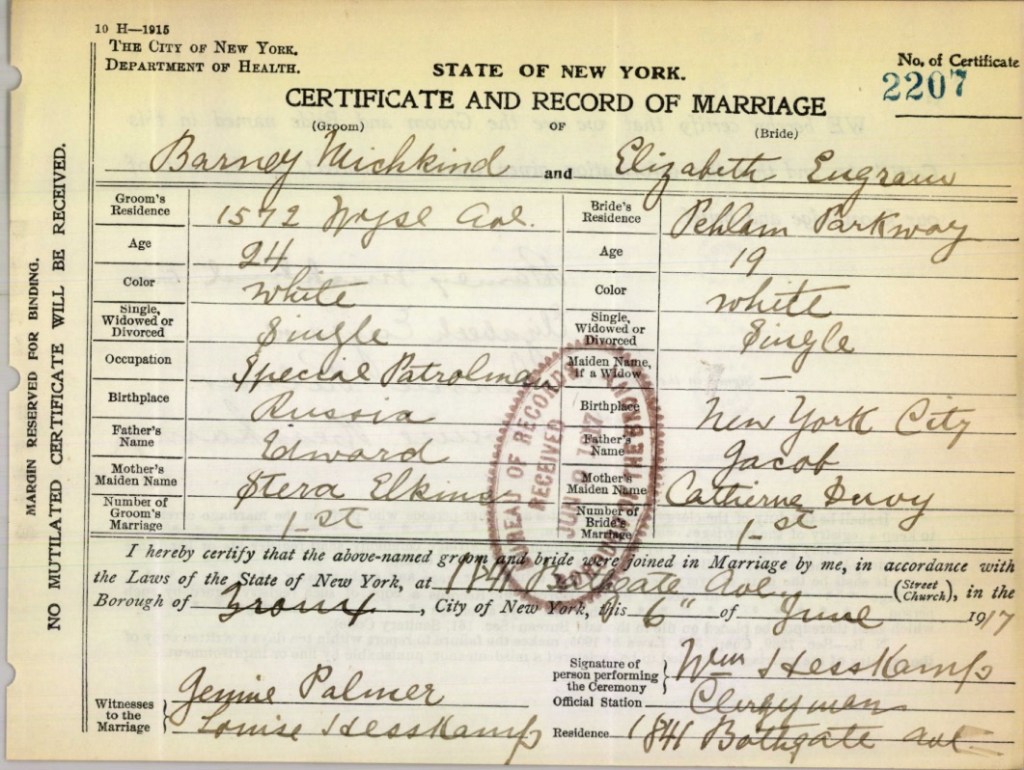 10 H—1915
THE CITY OF NEW YORK.
DEPARTMENT OF HEALTH.
STATE OF NEW YORK.
No. of Certificate
2207
CERTIFICATE AND RECORD OF MARRIAGE
(Groom) OF (Bride)
Barney Michkind and Elizabeth Engram
Groom's Residence 1572 Wyse Ave. Bride's Residence Pehlam Parkway
Age 24 Age 19
Color White Color White
Single, Widowed or Divorced Single Single, Widowed or Divorced Single
Occupation Special Patrolman Maiden Name, if a Widow —
Birthplace Russia Birthplace New York City
Father's Name Edward Father's Name Jacob
Mother's Maiden Name Stera Elkins Mother's Maiden Name Catherine
Number of Groom's Marriage 1-st Number of Bride's Marriage 1-st
I hereby certify that the above-named groom and bride were joined in Marriage by me, in accordance with
the Laws of the State of New York, at 1841 Bathgate Ave. (Street Church), in the
Borough of Bronx, City of New York, this 6" of June 1917
Signature of person performing the Ceremony Wm Hesskamp
Official Station Clergyman
Residence 1841 Bathgate Ave
Witnesses to the Marriage Jennie Palmer
Louise Hesskamp
MARGIN RESERVED FOR BINDING.
NO MUTILATED CERTIFICATE WILL BE RECEIVED.
BUREAU OF RECORDS
RECEIVED
JUN 1917
BOROUGH OF THE BRONX